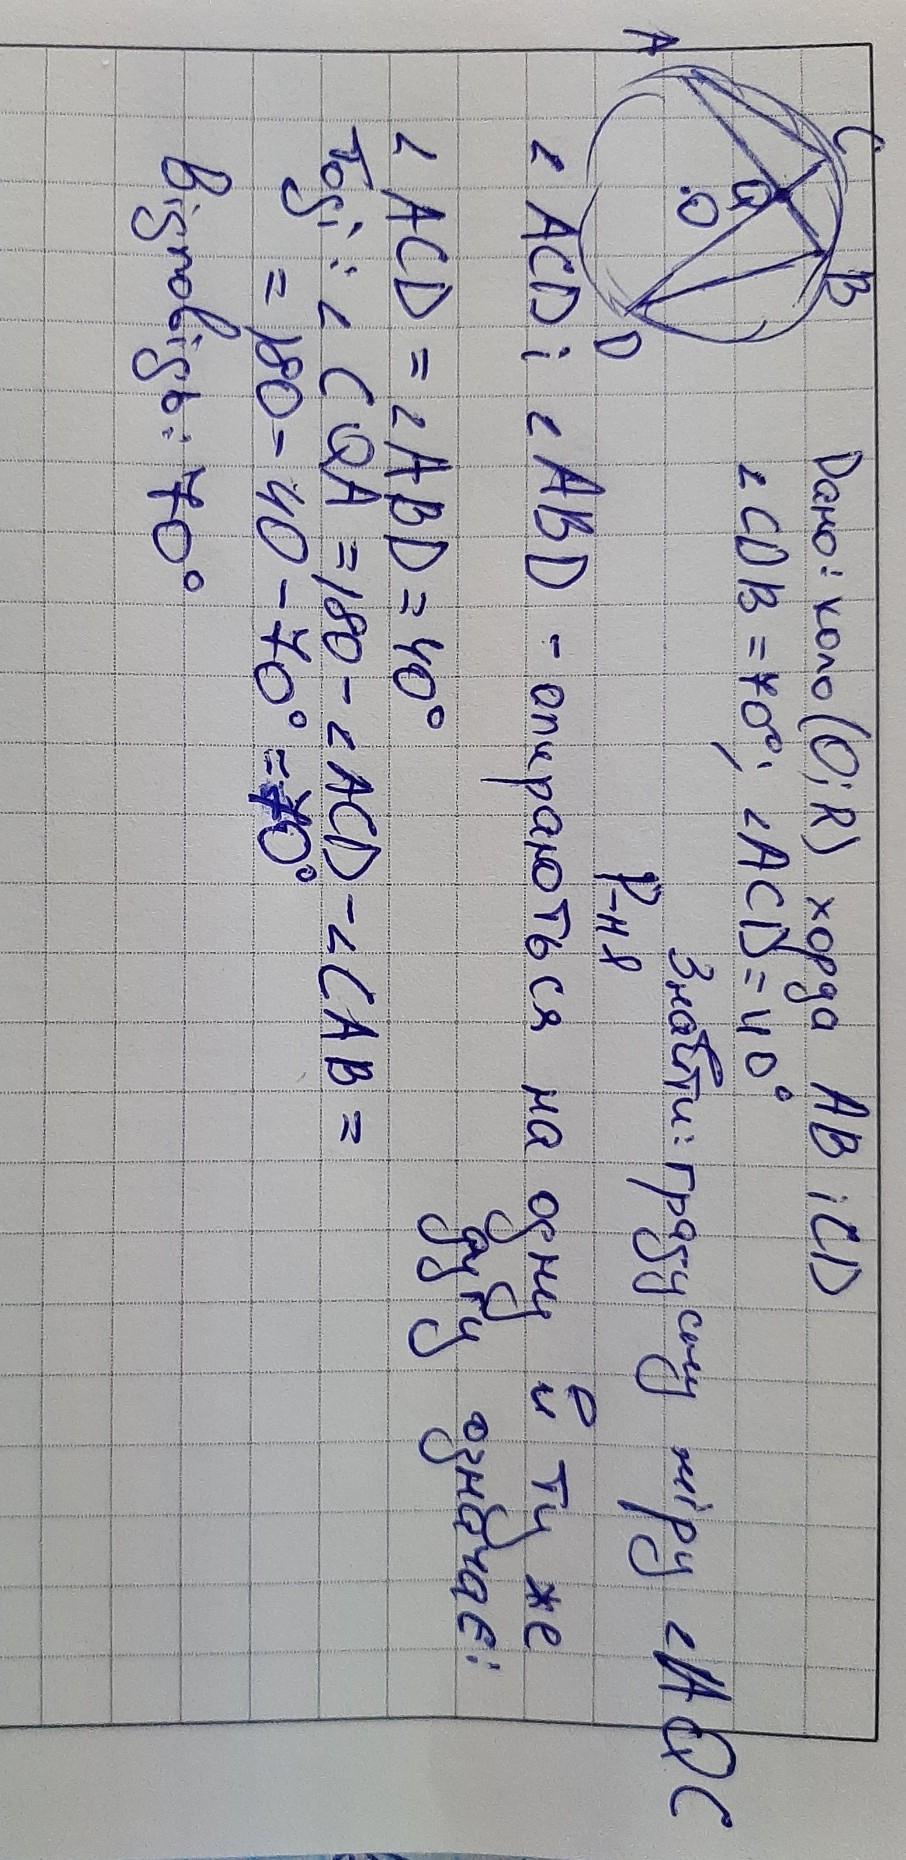 A
C
B
Q
.O
D
Дано: коло (O; R) хорда AB і CD
∠CDB = 70°; ∠ACD = 40°
Знайти: градусну міру ∠AQC
Р-ня
∠ACD і ∠ABD - опираються на одну й ту же
дугу означає:
∠ACD = ∠ABD = 40°
Тоді: ∠CQA = 180 - ∠ACD - ∠CAB =
= 180 - 40 - 70° = 70°
Відповідь: 70°